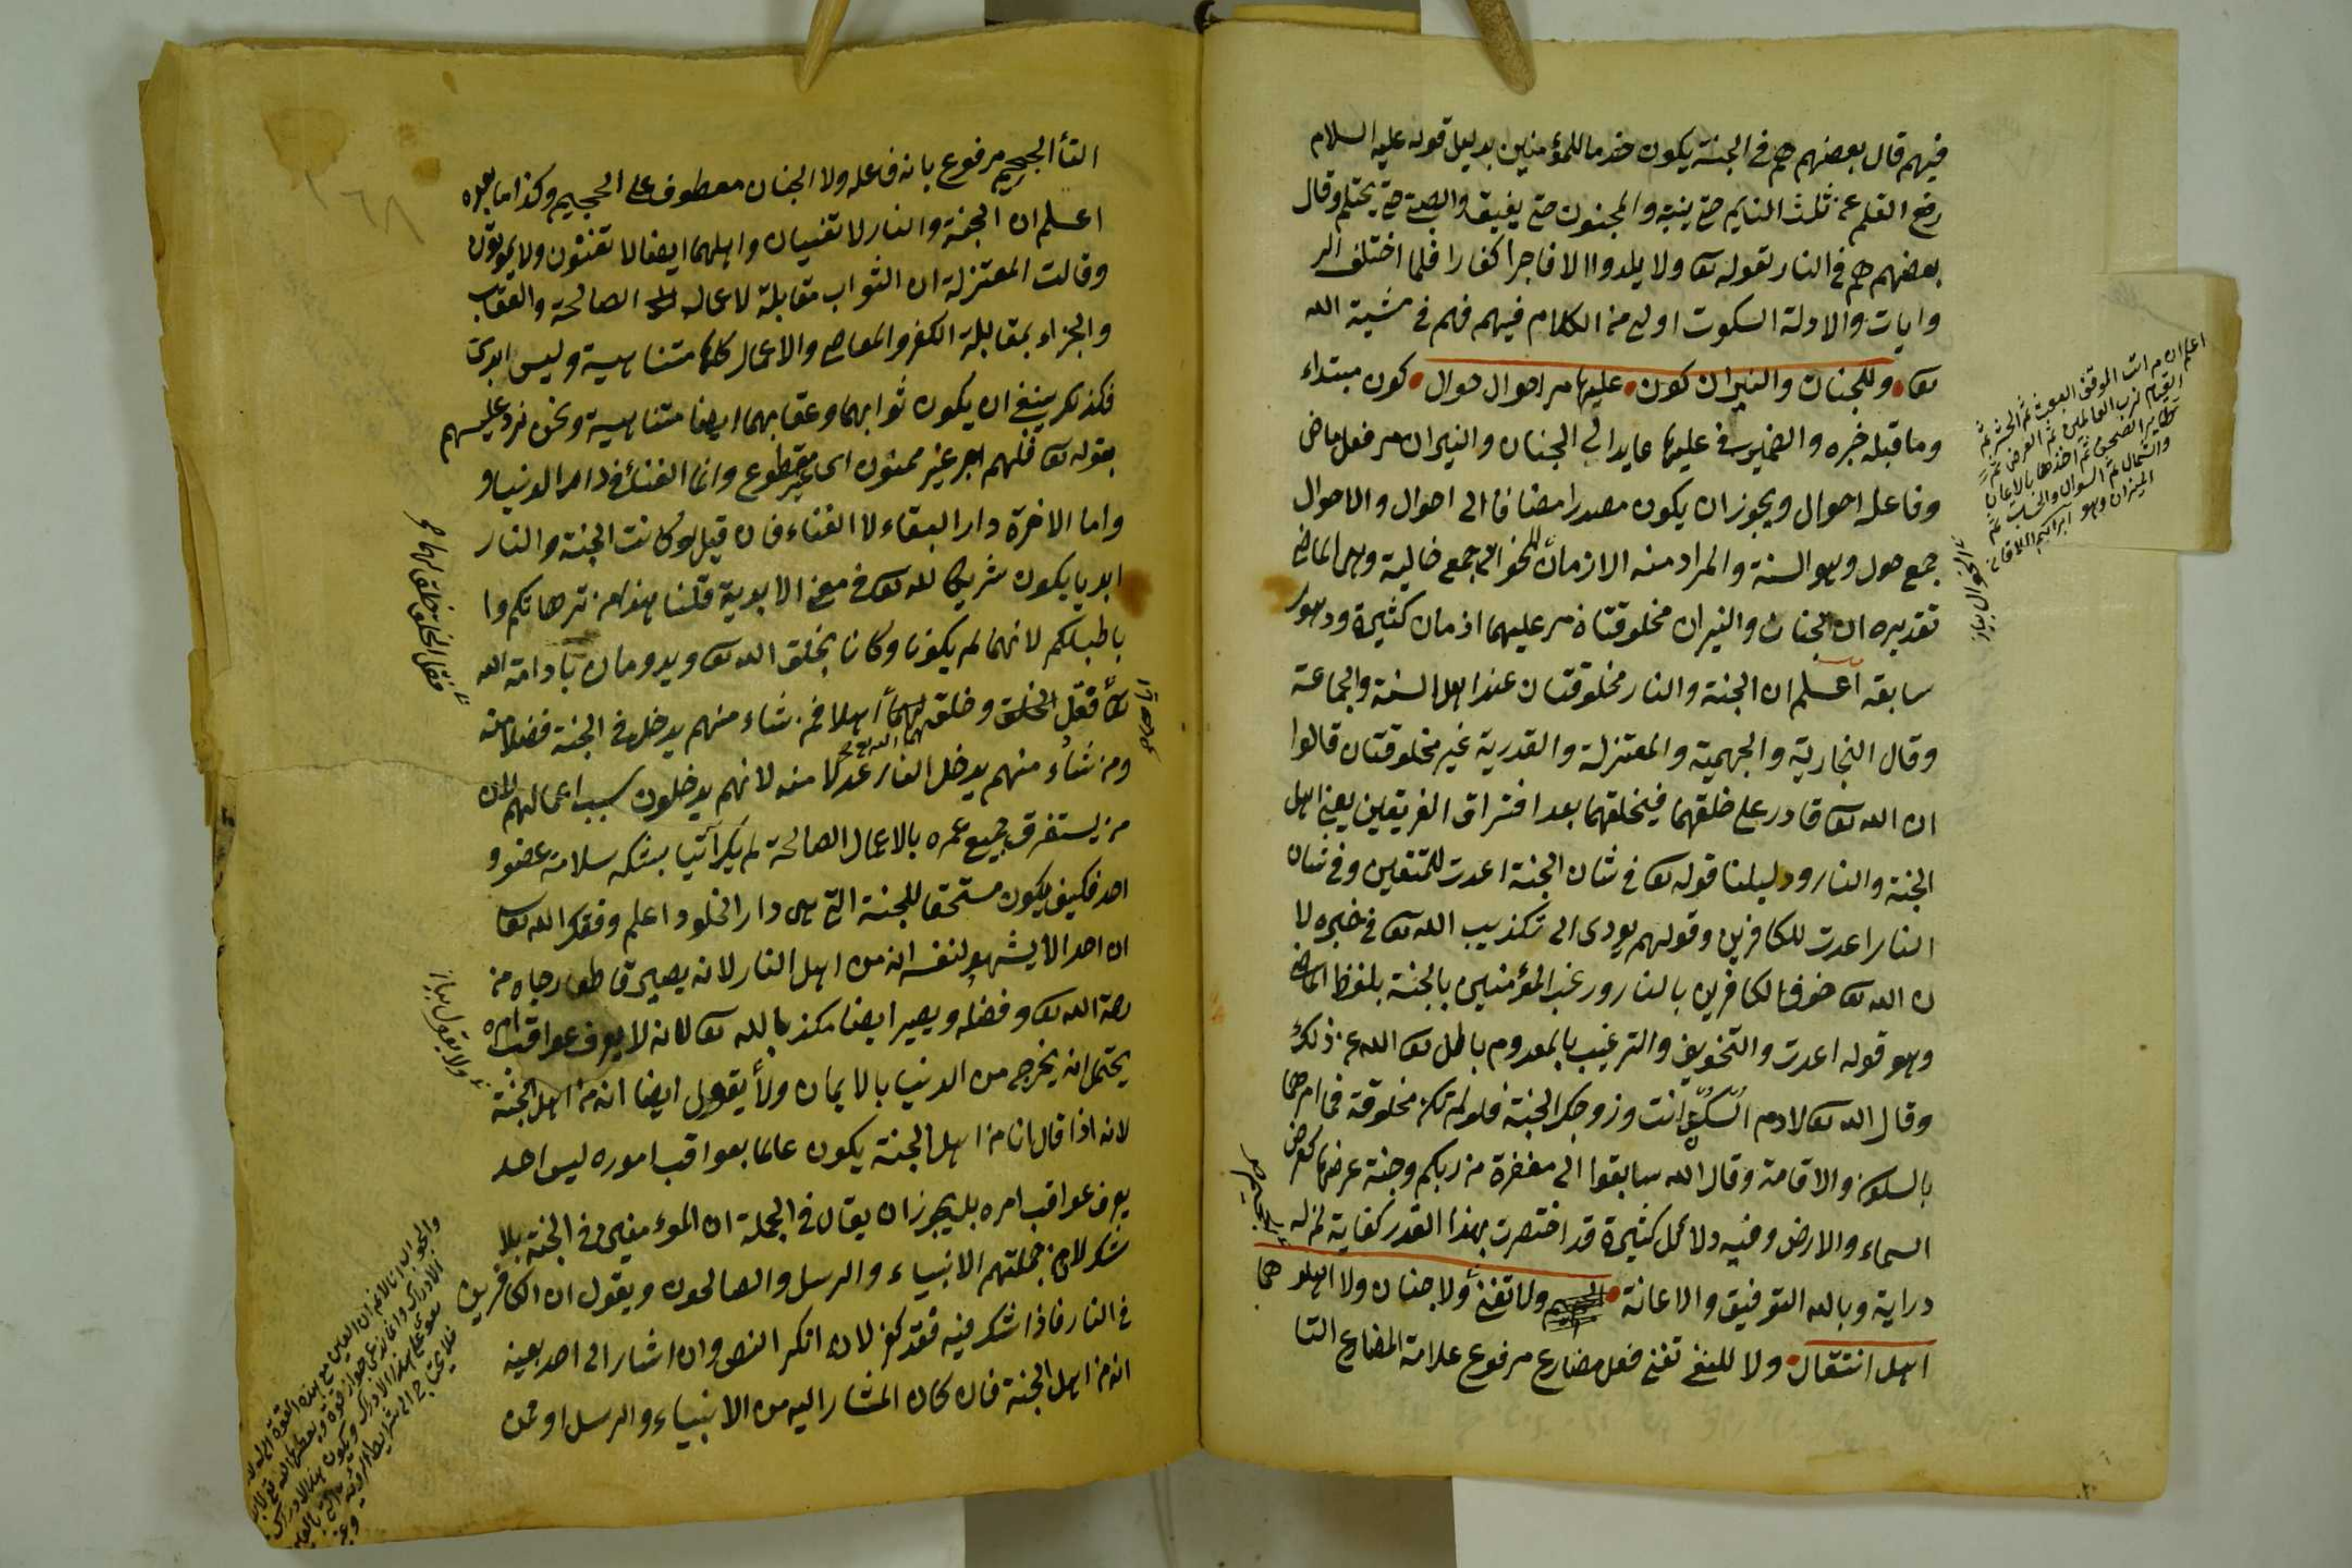 فيهم قال بعضهم هم في الجنة يكون خدما للمؤمنين بدليل قوله عليه السلام
رفع القلم عن ثلث النايم حتى ينبه والمجنون حتى يفيق والصبي حتى يحتلم وقال
بعضهم هم في النار لقوله تعا ولا يلدوا الا فاجرا كفارا فلما اختلف
وايات والادلة السكوت اولى من الكلام فيهم فهم في مشية الله
تعا وللجنان والنيران كون عليها مر احوال حوال كون مبتداء
وما قبله خبره والضمير في عليها عايد الى الجنان والنيران مر فعل ماض
وفاعله احوال ويجوز ان يكون مصدرا مضافا الى احوال والاحوال
جمع حول وهو السنة والمراد منه الازمان الخوالي جمع خالية وهى الماضى
تقديره ان الجنان والنيران مخلوقتان مر عليهما ازمان كثيرة ودهور
سابقه اعلم ان الجنة والنار مخلوقتان عند اهل السنة والجماعة
وقال النجارية والجهمية والمعتزلة والقدرية غير مخلوقتان قالوا
ان الله تعا قادر على خلقهما فيخلقهما بعد افتراق الفريقين يعنى اهل
الجنة والنار ودليلنا قوله تعا في شان الجنة اعدت للمتقين وفي شان
النار اعدت للكافرين وقولهم يودى الى تكذيب الله تعا في خبره لا
ن الله تعا خوف الكافرين بالنار ورغب المؤمنين بالجنة بلفظ الماضى
وهو قوله اعدت والتخويف والترغيب بالمعدوم باطل تعا الله عن ذلك
وقال الله تعا لادم اسكن انت وزوجك الجنة فلو لم تكن مخلوقة فما امرهما
بالسكون والاقامة وقال الله سابقوا الى مغفرة من ربكم وجنة عرضها كعرض
السماء والارض وفيه دلائل كثيرة قد اختصرت بهذا القدر كفاية لمن له
دراية وبالله التوفيق والاعانة ولا تفنى ولا جنان ولا اهلوهما
اهل انتقال ولا للنفى تفنى فعل مضارع مرفوع علامة المضارع التا
اعلم ان مراتب الموقف البعث ثم الحشر ثم
القيام لرب العالمين ثم العرض ثم
تطاير الصحف ثم اخذها بالايمان
والشمال ثم السوال والحساب ثم
الميزان وهو ابراهيم اللاقانى
الجحيم
التأ الجحيم مرفوع بانه فاعله ولا الجنان معطوف على الجحيم وكذا ما بعده
اعلم ان الجنة والنار لا تفنيان واهلهما ايضا لا تفنون ولا يموتون
وقالت المعتزلة ان الثواب مقابلة لاعمال الصالحة والعقاب
والجزاء بمقابلة الكفر والمعاصى والاعمال كلها متناهية وليس ابدى
فكذلك ينبغى ان يكون ثوابهما وعقابهما ايضا متناهية ونحن نرد عليهم
بقوله تعا فلهم اجر غير ممنون اى غير مقطوع وانما الفناء في دار الدنيا و
واما الاخرة دار البقاء لا الفناء فان قيل لو كانت الجنة والنار
ابديا يكون شريكا لله تعا في معنى الابدية قلنا هذا من ترهاتكم وا
باطيلكم لانهما لم يكونا وكانا بخلق الله تعا ويدومان بادامة الله
تعا فقبل الخلق وخلق لهما اهلا فمن شاء منهم يدخل في الجنة فضلا منه
ومن شاء منهم يدخل النار عدلا منه لانهم يدخلون سبب اعمالهم لان
من يستغرق جميع عمره بالاعمال الصالحة لم يكن آتيا بشكر سلامة عضو و
احد فكيف يكون مستحقا للجنة التى هى دار الخلود اعلم وفقك الله تعا
ان احدا لا يشهد لنفسه انه من اهل النار لانه يصير قاطعا رجاه من
رحمة الله تعا وفضله ويصير ايضا مكذبا بالله تعا لانه لا يعرف عواقب امره
يحتمل انه يخرج من الدنيا بالايمان ولا يقول ايضا انه من اهل الجنة
لانه اذا قال انا من اهل الجنة يكون عالما بعواقب اموره ليس احد
يعرف عواقب امره بل يجوز ان يقال في الجملة ان المؤمنين في الجنة بلا
شك لان من جملتهم الانبياء والرسل والصالحون ويقول ان الكافرين
في النار فاذا شك فيه فقد كفر لان انكر النص وان اشار الى احد بعينه
انه من اهل الجنة فان كان المشار اليه من الانبياء والرسل او ممن
١٦٨
ولا يقول